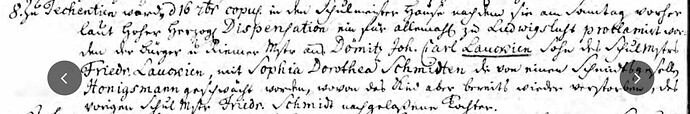 8. Zu Techentin wurden d 16 7br copul. in des Schulmeister Hause nachdem sie am Sonntag vorher
laut hoher herzogl Dispensation ein für allemahl zu Ludwigslust proklamirt wor-
den der Bürger u Riemer Mstr aus Dömitz Joh. Carl Lauxzien Sohn des Schul Mstrs
Friedr. Lauxzien, mit Sophia Dorothea Schmidten die von einem Schmidtsgesellen
Honigsmann geschwächt worden, wovon das Kind aber bereits wieder verstorben, des
vorigen Schul Mstr Friedr. Schmidt nachgelassene Tochter.